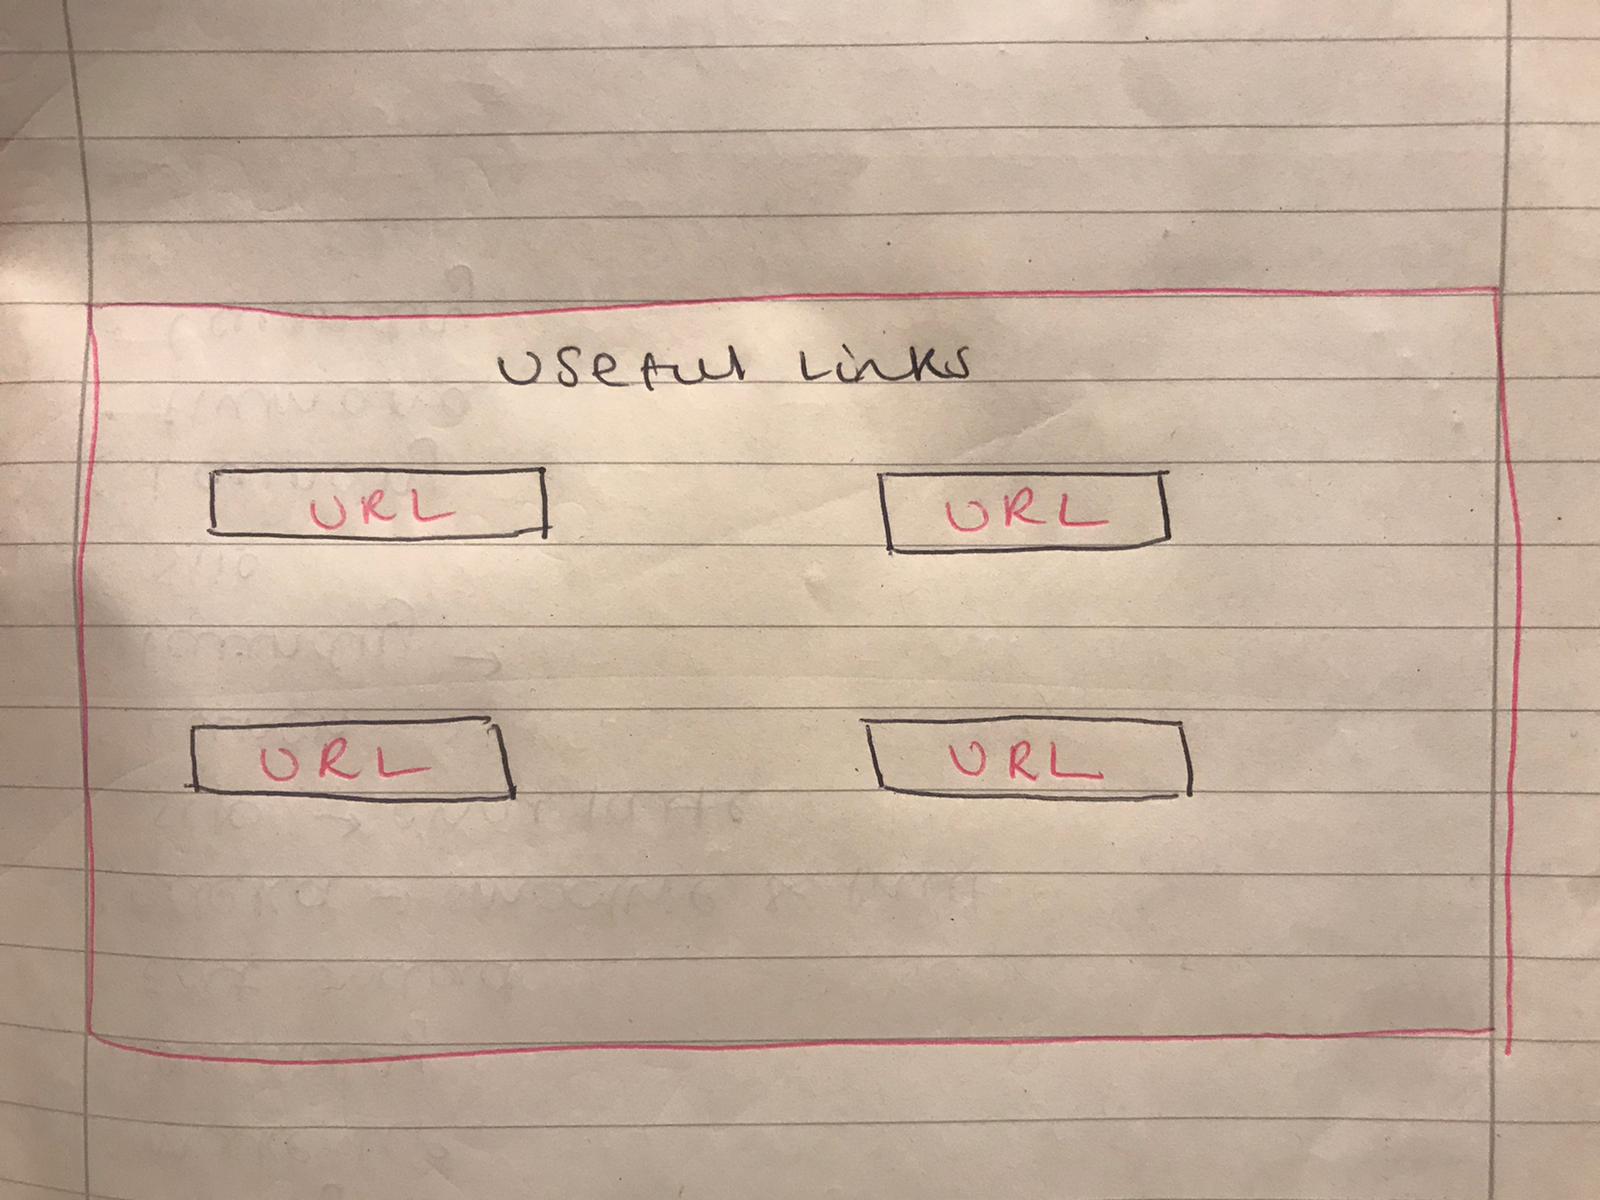 Useful Links
URL URL
URL URL